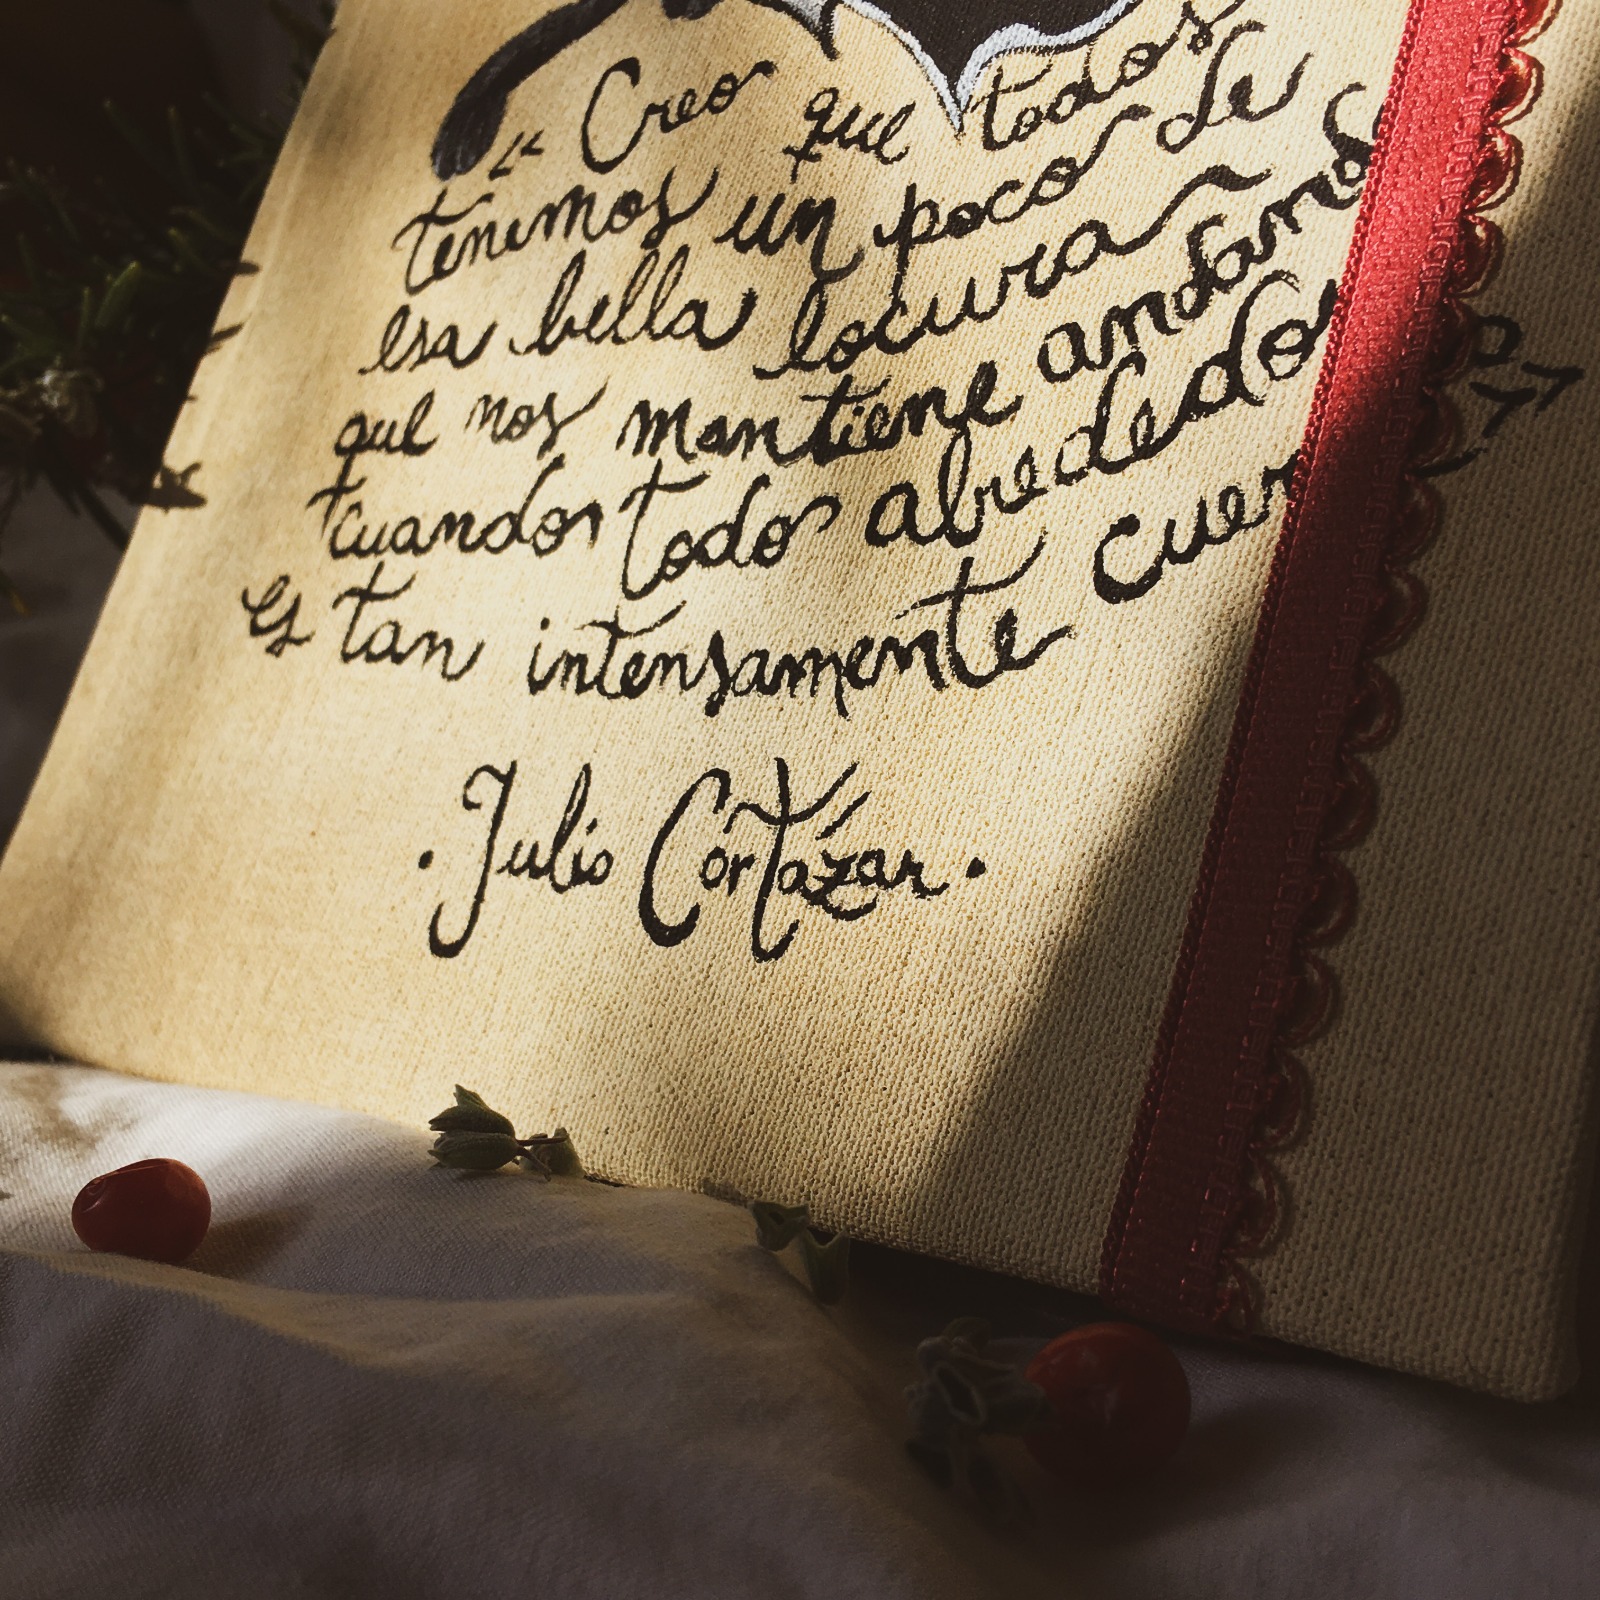 “Creo que todos
tenemos un poco de
esa bella locura
que nos mantiene andando
cuando todo alrededor
es tan intensamente cuer o”
·Julio Cortázar·